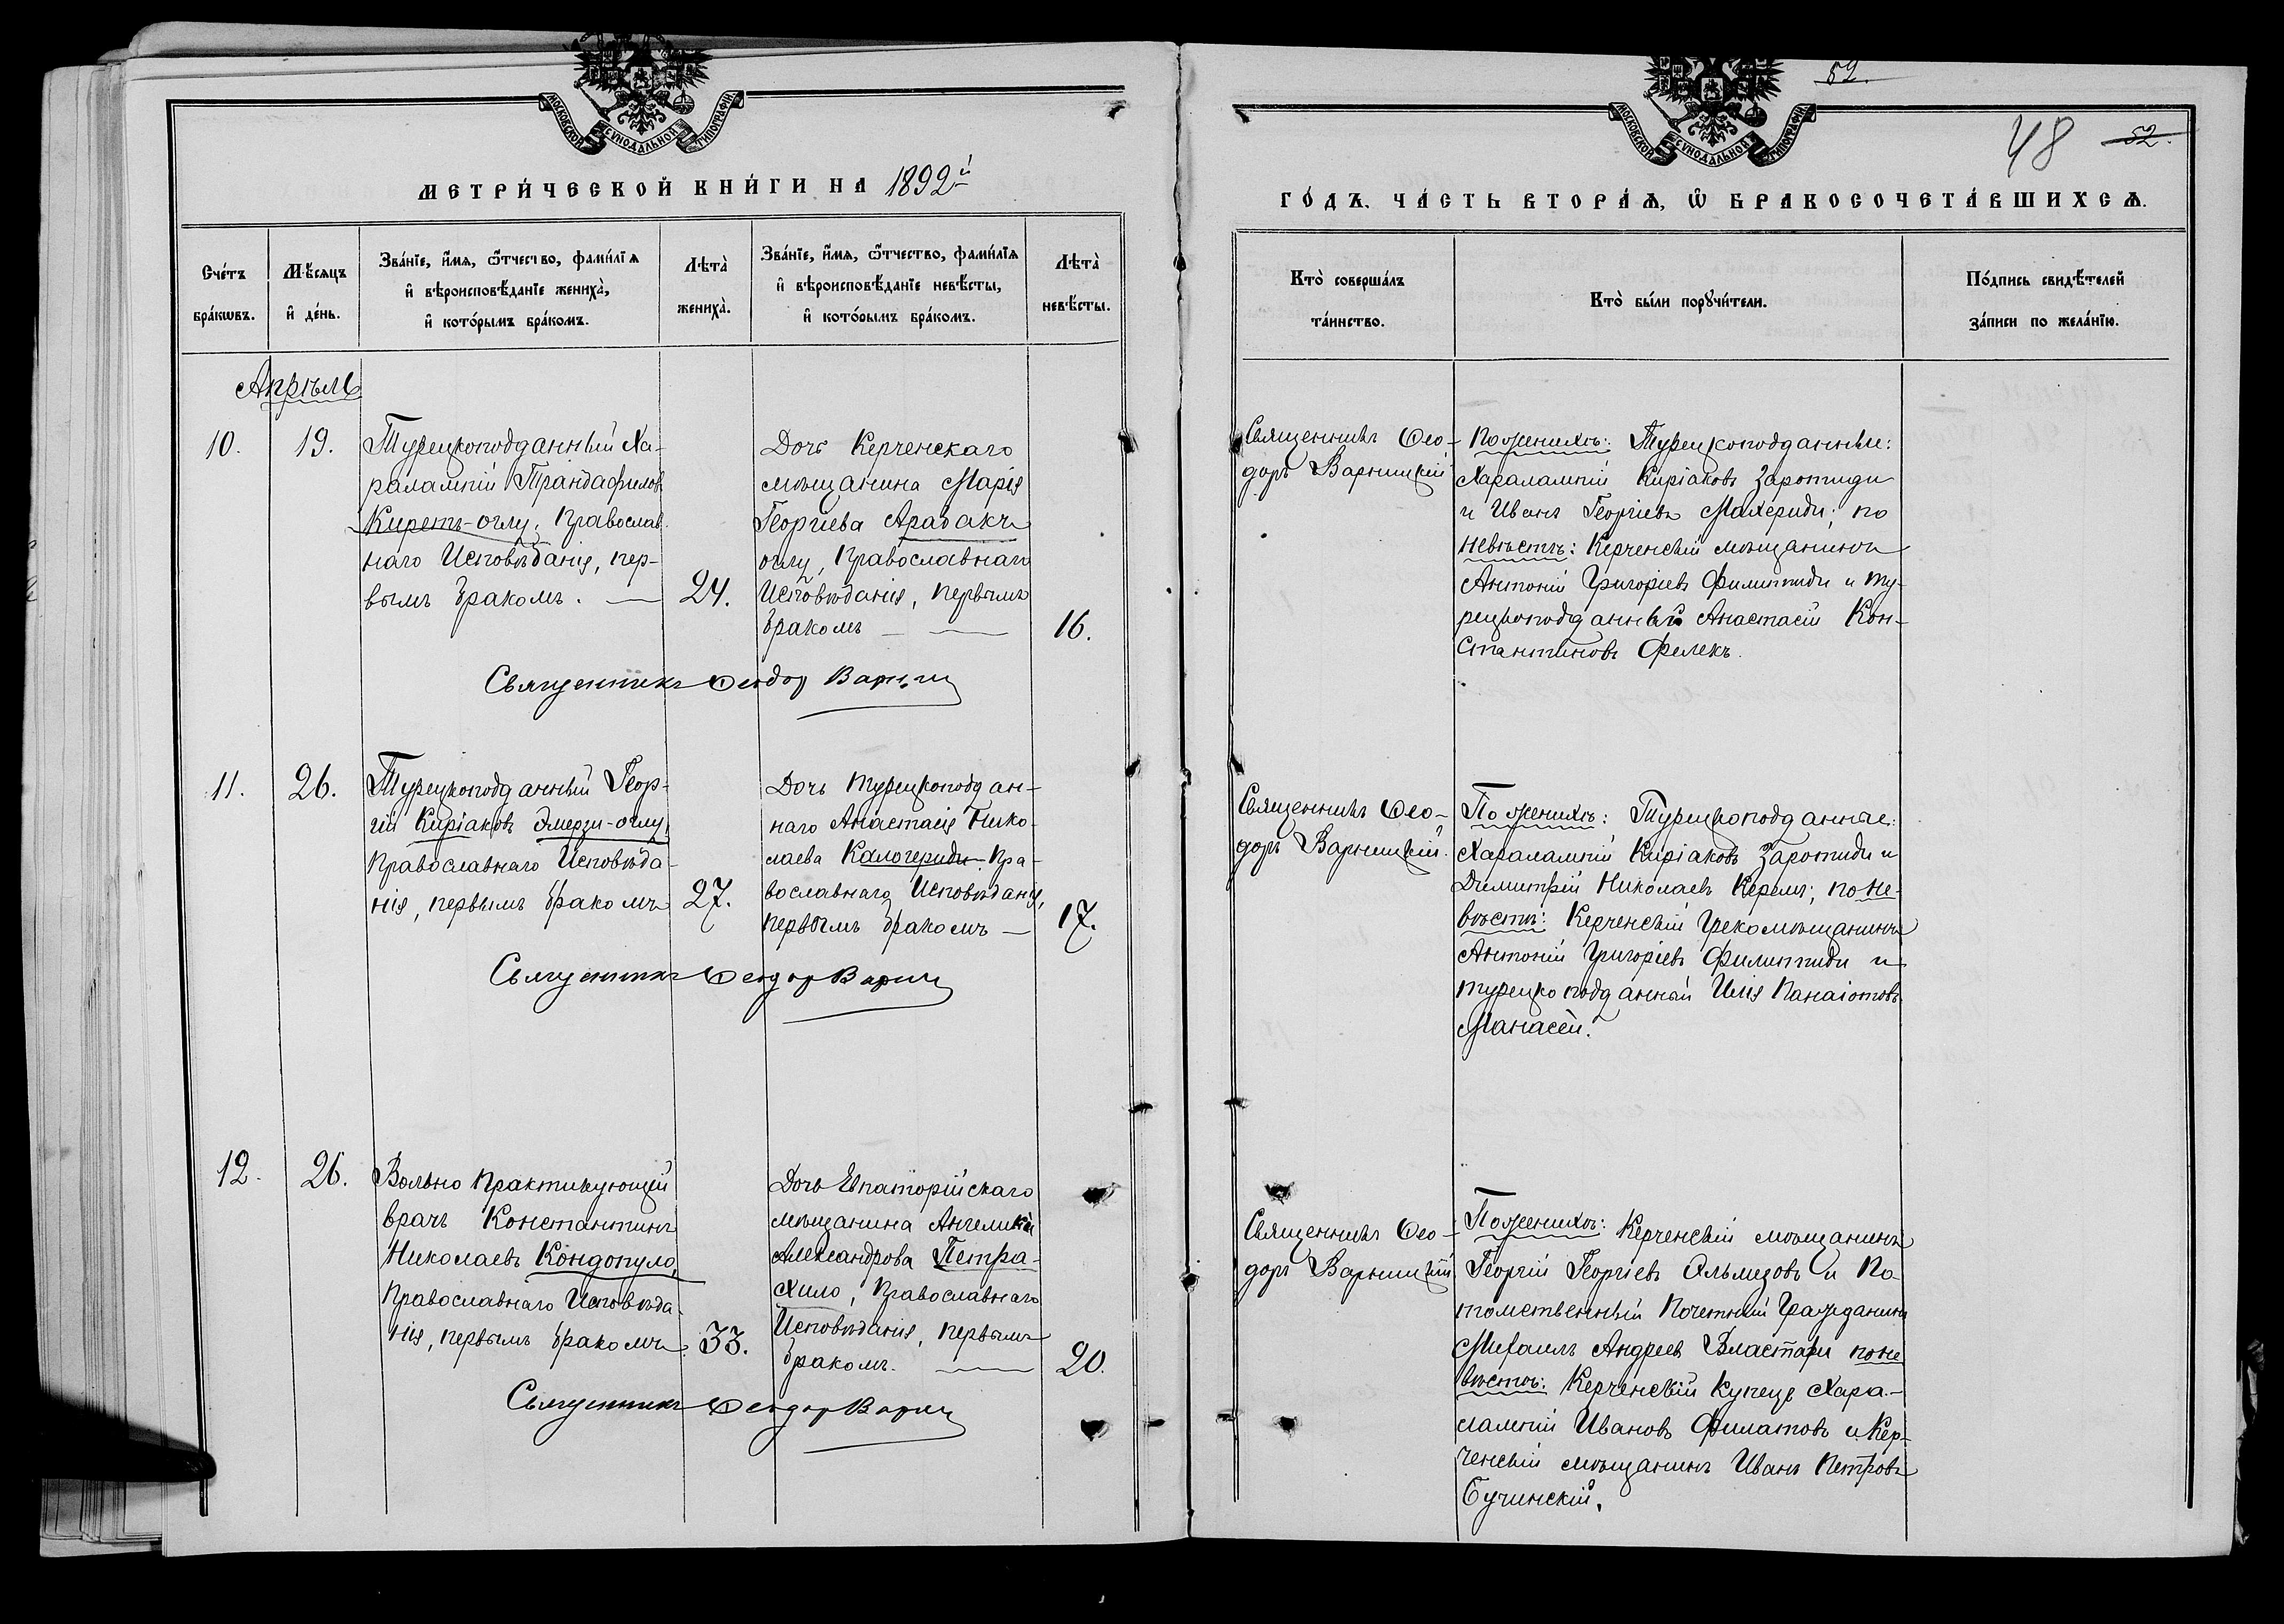 МОСКОВСКОЙ СѴНОДАЛЬНОЙ ТИПОГРАФІИ.
МЕТРИ́ЧЕСКОЙ КНИ́ГИ НА 1892й
Сче́тъ бра́кѡвъ.
Мѣ́сяцъ и҆ де́нь.
Зва́нїе, и҆́мѧ, ѻ҆́тчество, фами́лїѧ
и҆ вѣроисповѣ́данїе жениха̀,
и҆ кото́рымъ бра́комъ.
Лѣта̀
жениха̀.
Зва́нїе, и҆́мѧ, ѻ҆́тчество, фами́лїѧ
и҆ вѣроисповѣ́данїе невѣ́сты,
и҆ кото́рымъ бра́комъ.
Лѣта̀
невѣ́сты.
Апрѣль
10.
19.
Турецкоподданный Ха-
ралампій Трандафиловъ
Киреть-оглу, Православ-
наго Исповѣданія, пер-
вымъ бракомъ.
24.
Дочь Керченскаго
мѣщанина Марія
Георгіева Арабакчи
оглу, Православнаго
Исповѣданія, первымъ
бракомъ
16.
Священникъ Ѳеодор
11.
26.
Турецкоподданный Геор-
гій Киріаковъ Эмерзи-оглу,
Православнаго Исповѣда-
нія, первымъ бракомъ
27.
Дочь Турецкоподдан-
наго Анастасія Нико-
лаева Калогериди Пра-
вославнаго Исповѣданія,
первымъ бракомъ
17.
Священникъ Ѳеодор
12.
26.
Вольно практикующій
врачъ Константинъ
Николаевъ Кондопуло,
Православнаго Исповѣда-
нія, первымъ бракомъ.
33.
Дочь Евпаторійскаго
мѣщанина Ангелика
Александрова Петра-
хило, Православнаго
Исповѣданія, первымъ
бракомъ.
20.
Священникъ Ѳеодор
МОСКОВСКОЙ СѴНОДАЛЬНОЙ ТИПОГРАФІИ.
52.
48 52.
ГО́ДЪ. ЧА́СТЬ ВТОРА́Ѧ, Ѡ҆ БРАКОСОЧЕТА́ВШИХСѦ.
Кто̀ соверша́лъ
та́инство.
Кто̀ бы́ли порꙋчи́тели.
По́дпись свидѣ́телей
за́писи по жела́нїю.
Священникъ Ѳео-
доръ Варницкій
По женихѣ: Турецкоподданные:
Харалампій Киріаковъ Заропиди
и Иванъ Георгіевъ Махериди; по
невѣстѣ: Керченскій мѣщанинъ
Антоній Григоріевъ Филиппиди и ту-
рецкоподданный Анастасій Кон-
стантиновъ Фелекъ.
Священникъ Ѳео-
доръ Варницкій.
По женихѣ: Турецкоподданные:
Харалампій Киріаковъ Заропиди и
Димитрій Николаевъ Керемъ; по не-
вѣстѣ: Керченскій грекомѣщанинъ
Антоній Григоріевъ Филиппиди и
турецкоподданный Илія Панаіотовъ
Манасей.
Священникъ Ѳео-
доръ Варницкій
По женихѣ: Керченскій мѣщанинъ
Георгій Георгіевъ Ольмезовъ и По-
томственный Почетный Гражданинъ
Михаилъ Андреевъ Властари по не
вѣстѣ: Керченскій купецъ Хара-
лампій Ивановъ Филатовъ и Кер-
ченскій мѣщанинъ Иванъ Петровъ
Бучинскій.